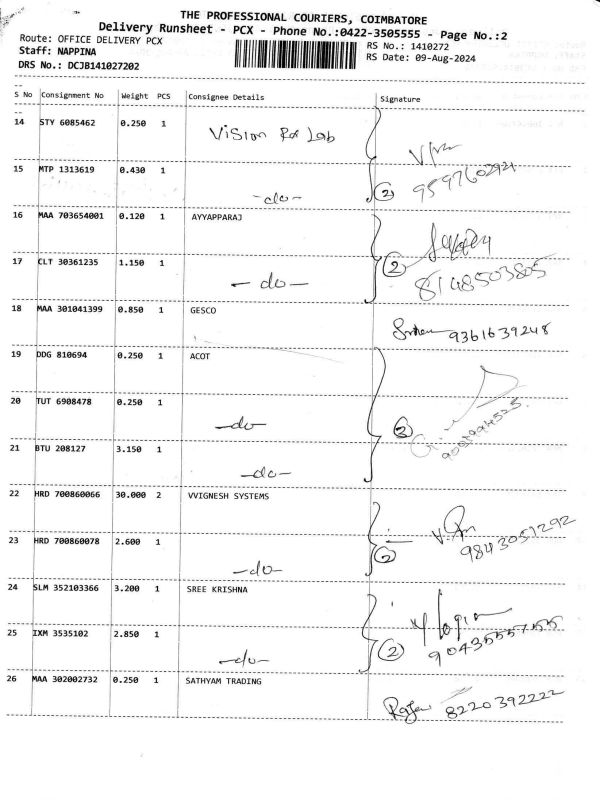 THE PROFESSIONAL COURIERS, COIMBATORE
Delivery Runsheet - PCX - Phone No.:0422-3505555 - Page No.:2
Route: OFFICE DELIVERY PCX
RS No.: 1410272
Staff: NAPPINA
RS Date: 09-Aug-2024
DRS No.: DCJB141027202
S No Consignment No Weight PCS Consignee Details Signature
14 STY 6085462 0.250 1 Vision Rx Lab
15 MTP 1313619 0.430 1 -do- 2
16 MAA 703654001 0.120 1 AYYAPPARAJ
17 CLT 30361235 1.150 1 -do- 2 8148503805
18 MAA 301041399 0.850 1 GESCO 9361639248
19 DDG 810694 0.250 1 ACOT
20 TUT 6908478 0.250 1 -do-
21 BTU 208127 3.150 1 -do-
22 HRD 700860066 30.000 2 VVIGNESH SYSTEMS
23 HRD 700860078 2.600 1 -do- 2 9843051292
24 SLM 352103366 3.200 1 SREE KRISHNA
25 IXM 3535102 2.850 1 -do- 2
26 MAA 302002732 0.250 1 SATHYAM TRADING 8220392222